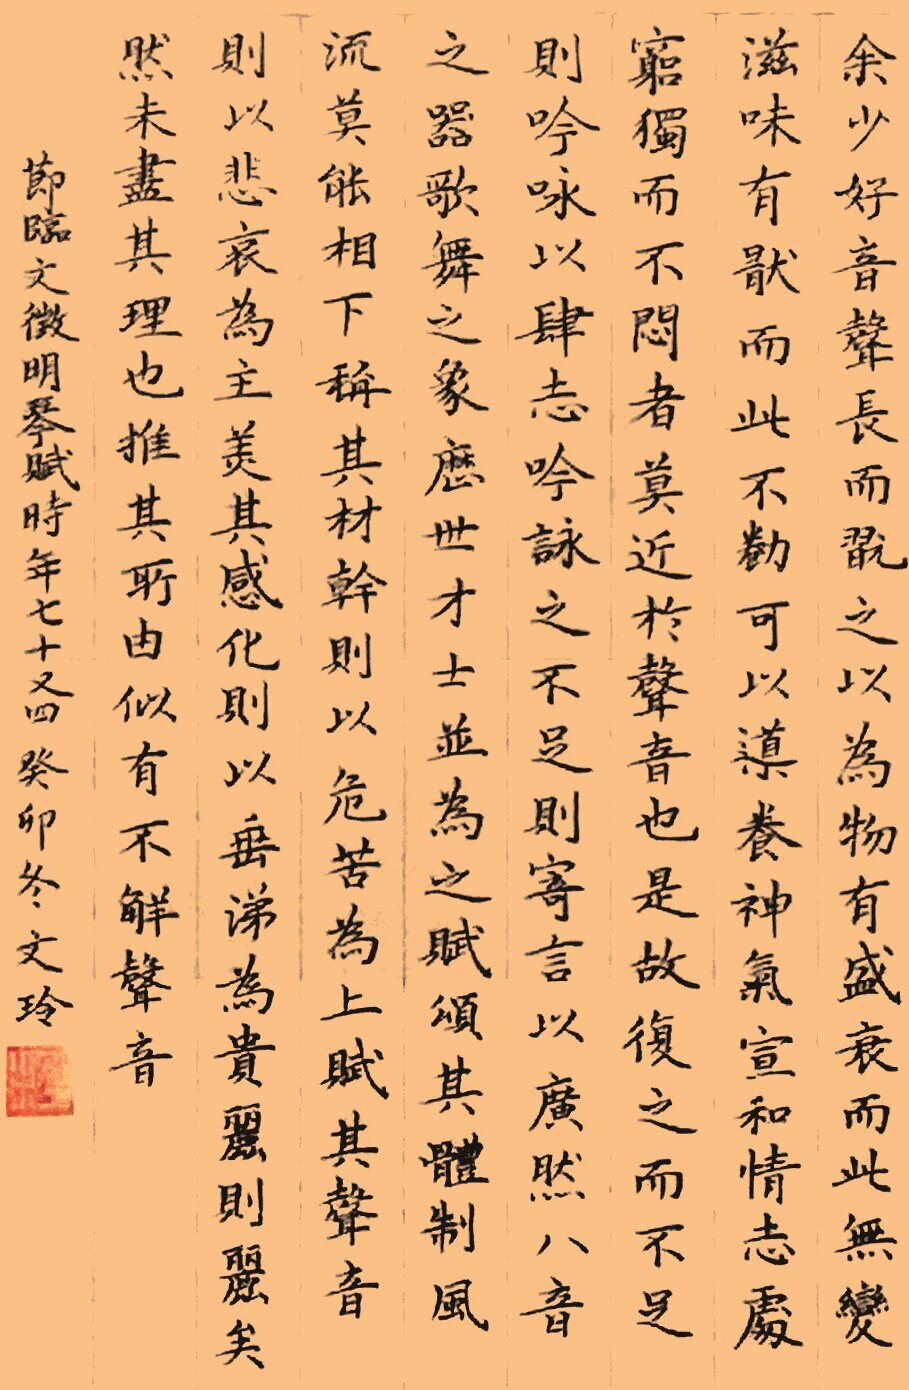 余少好音聲長而翫之以為物有盛衰而此無變
滋味有猒而此不勌可以導養神氣宣和情志處
窮獨而不悶者莫近於聲音也是故復之而不足
則吟咏以肆志吟詠之不足則寄言以廣然八音
之器歌舞之象歷世才士並為之賦頌其體制風
流莫能相下稱其材幹則以危苦為上賦其聲音
則以悲哀為主美其感化則以垂涕為貴麗則麗矣
然未盡其理也推其所由似有不解聲音
節臨文徵明琴賦時年七十又四癸卯冬文玲